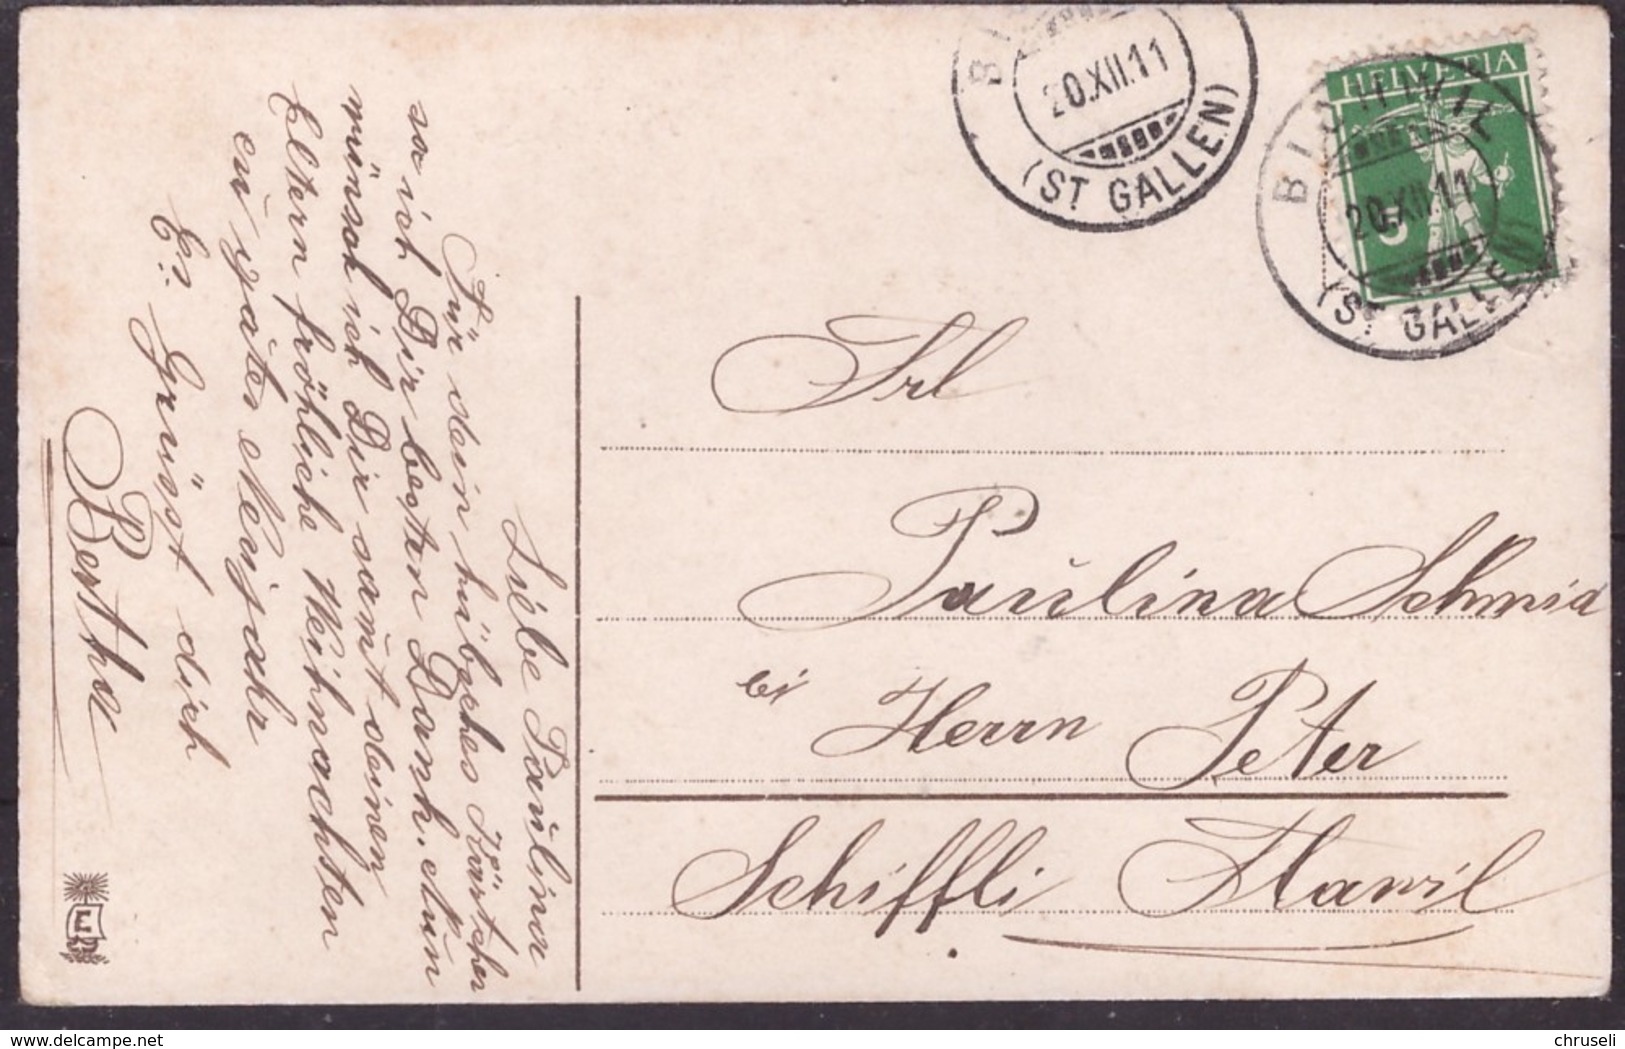 Liebe Paulina
Für dein hübsches Kärtchen
sa ich Dir besten Dank. Nun
münsch ich Dir samt deinen
Eltern fröhliche Weihnachten
ein gutes Neujahr
Es grüsst dich
Bertha
E
(ST GALLEN)
20.XII.11
HELVETIA
5
BICHWIL
20.XII.11
(ST GALLEN)
Frl
Paulina Schmid
bei Herrn Peter
Schiffli Flawil
delcampe.net
chruseli